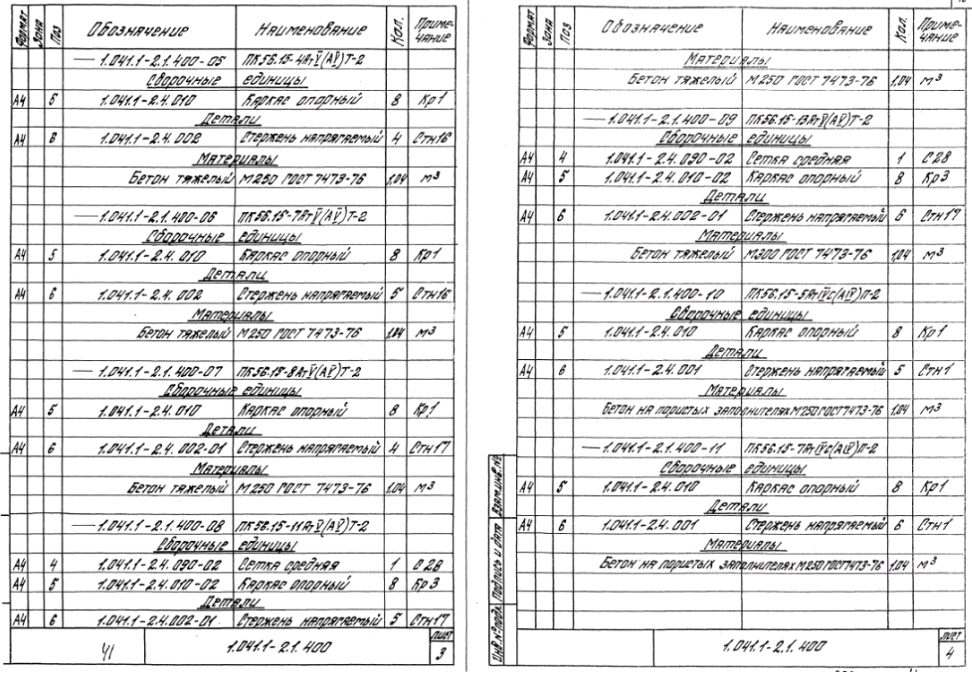 Формат Зона Поз Обозначение Наименование Кол. Приме-чание
— 1.041.1-2.1.400-05 ПК56.15-4АтV(АV)Т-2
Сборочные единицы
А4 5 1.041.1-2.4.010 Каркас опорный 8 Кр1
Детали
А4 6 1.041.1-2.4.002 Стержень напрягаемый 4 Стн16
Материалы
Бетон тяжелый М250 ГОСТ 7473-76 1,04 м³
— 1.041.1-2.1.400-06 ПК56.15-7АтV(АV)Т-2
Сборочные единицы
А4 5 1.041.1-2.4.010 Каркас опорный 8 Кр1
Детали
А4 6 1.041.1-2.4.002 Стержень напрягаемый 5 Стн16
Материалы
Бетон тяжелый М250 ГОСТ 7473-76 1,04 м³
— 1.041.1-2.1.400-07 ПК56.15-8АтV(АV)Т-2
Сборочные единицы
А4 5 1.041.1-2.4.010 Каркас опорный 8 Кр1
Детали
А4 6 1.041.1-2.4.002-01 Стержень напрягаемый 4 Стн17
Материалы
Бетон тяжелый М250 ГОСТ 7473-76 1,04 м³
— 1.041.1-2.1.400-08 ПК56.15-11АтV(АV)Т-2
Сборочные единицы
А4 4 1.041.1-2.4.090-02 Сетка средняя 1 С28
А4 5 1.041.1-2.4.010-02 Каркас опорный 8 Кр3
Детали
А4 6 1.041.1-2.4.002-01 Стержень напрягаемый 5 Стн17
41 1.041.1-2.1.400 Лист 3
Формат Зона Поз Обозначение Наименование Кол. Приме-чание
Материалы
Бетон тяжелый М250 ГОСТ 7473-76 1,04 м³
— 1.041.1-2.1.400-09 ПК56.15-13АтV(АV)Т-2
Сборочные единицы
А4 4 1.041.1-2.4.090-02 Сетка средняя 1 С28
А4 5 1.041.1-2.4.010-02 Каркас опорный 8 Кр3
Детали
А4 6 1.041.1-2.4.002-01 Стержень напрягаемый 6 Стн17
Материалы
Бетон тяжелый М300 ГОСТ 7473-76 1,04 м³
— 1.041.1-2.1.400-10 ПК56.15-5АтIVс(АIV)П-2
Сборочные единицы
А4 5 1.041.1-2.4.010 Каркас опорный 8 Кр1
Детали
А4 6 1.041.1-2.4.001 Стержень напрягаемый 5 Стн1
Материалы
Бетон на пористых заполнителях М250 ГОСТ7473-76 1,04 м³
— 1.041.1-2.1.400-11 ПК56.15-7АтIVс(АIV)П-2
Сборочные единицы
А4 5 1.041.1-2.4.010 Каркас опорный 8 Кр1
Детали
А4 6 1.041.1-2.4.001 Стержень напрягаемый 6 Стн1
Материалы
Бетон на пористых заполнителях М250 ГОСТ7473-76 1,04 м³
Инв.№ подл. Подпись и дата Взам.инв.№
1.041.1-2.1.400 Лист 4